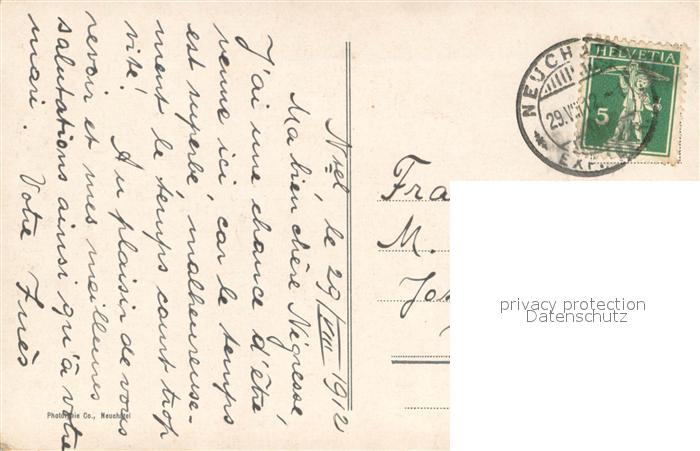 Ntel, le 29/VIII 1912
Ma bien chère Négresse,
J'ai une chance d'être
venue ici car le temps
est superbe, malheureuse-
ment le temps court trop
vite! Au plaisir de vous
revoir et mes meilleures
salutations ainsi qu'à votre
mari. Votre
Phototypie Co., Neuchâtel
HELVETIA
5
NEUCH
29.VIII
EXP.
Fra
M.
Jos
privacy protection
Datenschutz